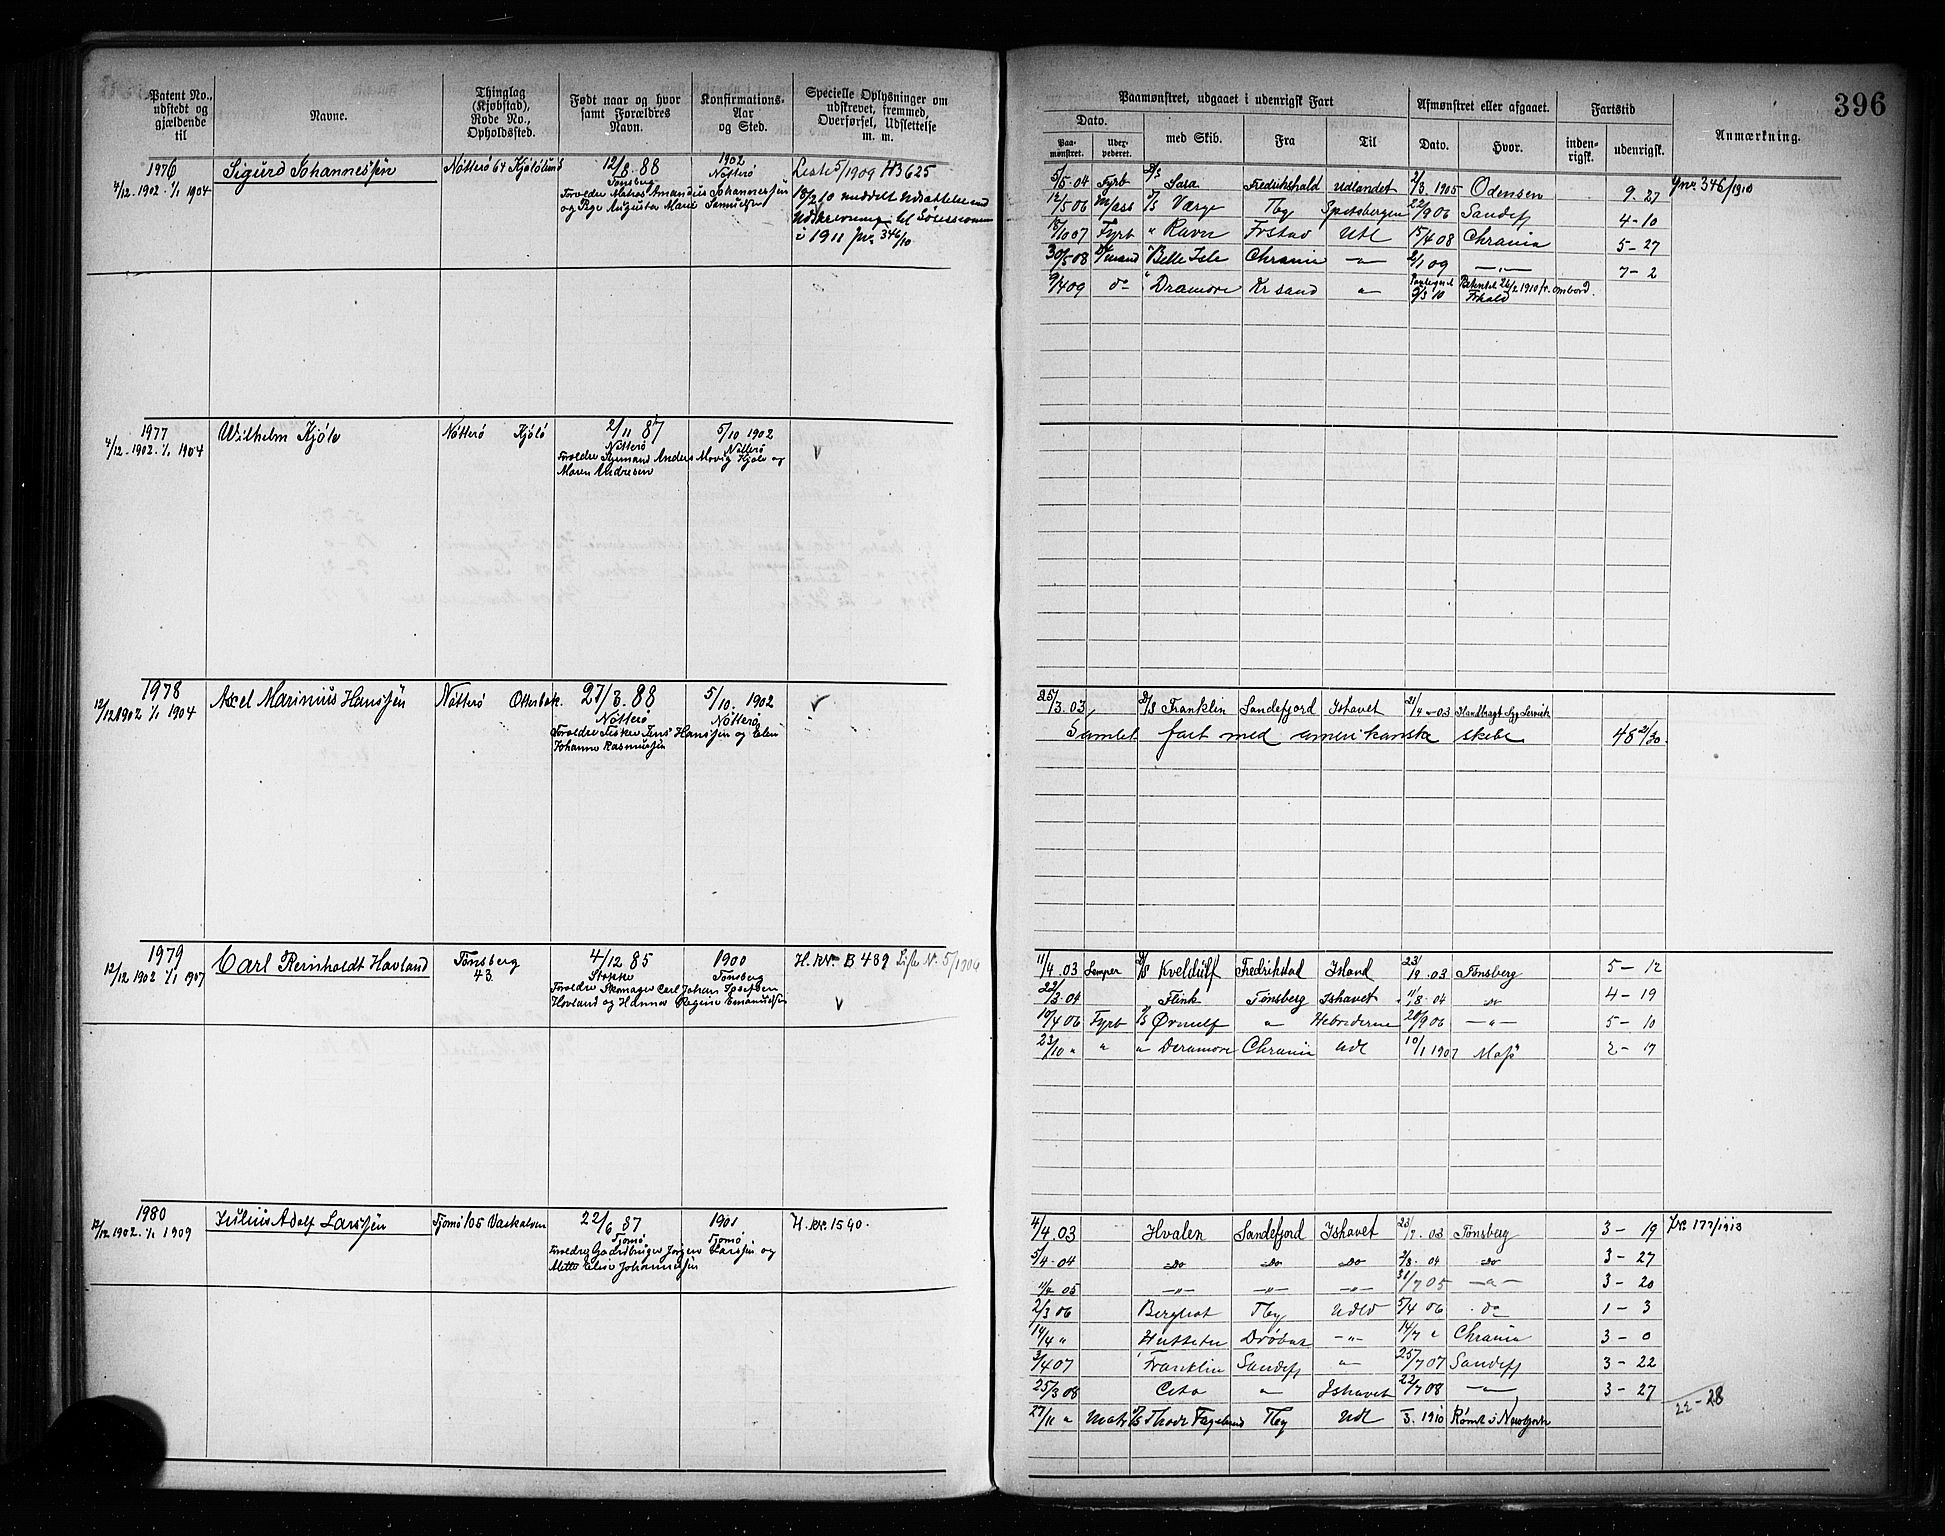 396
Patent No., udstedt og gjældende til
Navne.
Thinglag (Kjøbstad), Rode No., Opholdssted.
Født naar og hvor samt Forældres Navn.
Konfirmations-Aar og Sted.
Specielle Oplysninger om udskrevet, fremmed, Overførsel, Udslettelse m. m.
Paamønstret, udgaaet i udenrigsk Fart
Afmønstret eller afgaaet.
Fartstid
Anmærkning.
Dato.
Paa-mønstret.
med Skib.
Fra
Til
Dato.
Hvor.
inden-rigsk.
udenrigsk.
1976
4/12. 1902. 1/1 1904
Sigurd Johannessen
Nötterö 64 Kjölölund
12/8. 88
Tønsberg
1902
Nötterö
og Pige Augusta Marie Samuelsen
Liste 5/1909 H3625
i 1911 Jnr 346/10
5/5 04 Fyrb D/S Sara Fredrikshald Udlandet 2/3 1905 Odensen 9. 27 Jnr 346/1910
12/5 06 Mess D/S Værge Tbg Spetsbergen 22/9 06 Sandefj 4-10
10/10 07 Fyrb " Ravn Frstad Udl 15/4 08 Chrania 5-27
30/5 08 " Belle Isle Chrania -"- 2/1 09 -"- 7-2
9/4 09 do " Dramore Krsand " 2/3 10 Frhald ombord.
1977
4/12. 1902. 1/1 1904
Wilhelm Kjölö
Nötterö Kjölö
2/11 87
Nötterö
5/10 1902
Nötterö
Maren Andresen
1978
12/12 1902 1/1 1904
Axel Marinius Hanssen
Nötterö Otterbæk.
27/8. 88
Nötterö
5/10. 1902
Nötterö
Forældre Fisker Jens Hanssen og Elen
Johanne Rasmussen
25/3. 03 D/S Franklin Sandefjord Ishavet 21/4 - 03
Samlet fart med amerikanske skibe 48 21/30.
1979
12/12 1902 1/1 1907
Carl Reinholdt Havland
Tönsberg
43.
4/12. 85
Stokke
1900
Tönsberg
Forældre Skomager Carl Johan Josefsen
Hovland og Hanna Regine Emanuelsen
H. Nr. B 489 Liste Nr. 5/1904
11/4. 03 Lemper D/S Kveldulf Fredrikstad Island 23/9. 03 Tønsberg 5-12
22/3. 04 Flink Tønsberg Ishavet 11/8. 04 do 4-19
10/4 06 Fyrb D/S Ørnulf " Hebriderne 20/9 06 -"- 5-10
23/10 " " " Deramore Chrania Udl 10/1 1907 Mosø 2-17
1980
12/12 1902. 1/1 1909
Julius Adolf Larssen
Tjømö 105 Vaskalven
22/6 87
Tjømö
1901
Tjømö
Forældre Gaardbruger Jørgen Larssen og
Mette Elise Johannessen
H. Nr. 1540.
4/4. 03 Hvalen Sandefjord Ishavet 23/7. 03 Tønsberg 3-19 Jnr. 177/1913
5/4. 04 Do Do Do 2/8. 04 Do 3-27
11/4 05 -"- -"- -"- 31/7 05 -"- 3-20
2/3 06 Tbg Udld 5/4 06 do 1-3
14/4 " Drøbak -"- 14/7 " Chrania 3-0
3/4 07 Franklin Sandefj " 25/7 07 Sandefj 3-22
25/3 08 Ceto " Ishavet 22/7 08 -"- 3-27
27/11 " Matr D/S Thode Fagelund Tbg Udl 3. 1910 Rømt i Newyork
22-28